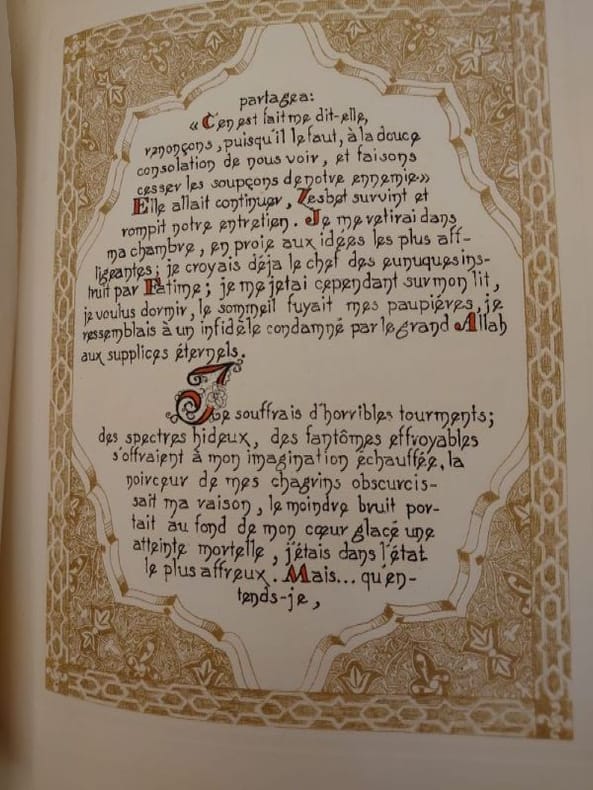 partagea:
« C'en est fait me dit-elle,
renonçons, puisqu'il le faut, à la douce
consolation de nous voir, et faisons
cesser les soupçons de notre ennemie»
Elle allait continuer, Zesbet survint et
rompit notre entretien. Je me retirai dans
ma chambre, en proie aux idées les plus aff-
ligeantes; je croyais déja le chef des eunuques ins-
truit par Fatime; je me jetai cependant sur mon lit,
je voulus dormir, le sommeil fuyait mes paupières, je
ressemblais à un infidèle condamné par le grand Allah
aux supplices éternels.
Je souffrais d'horribles tourments;
des spectres hideux, des fantômes effroyables
s'offraient à mon imagination échauffée, la
noirceur de mes chagrins obscurcis-
sait ma raison, le moindre bruit por-
tait au fond de mon cœur glacé une
atteinte mortelle, j'étais dans l'état
le plus affreux. Mais... qu'en-
tends-je,